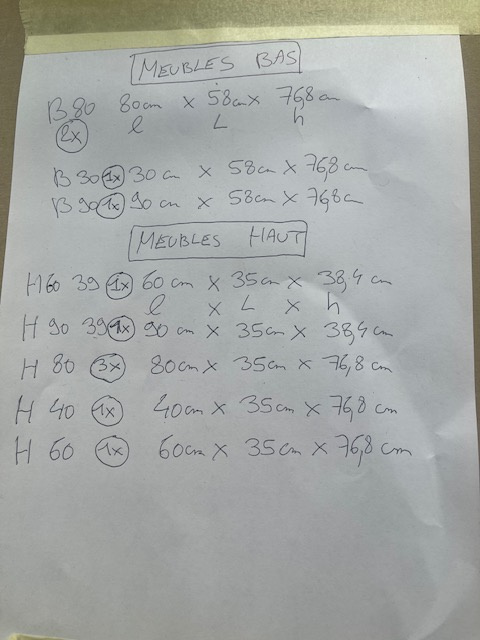 MEUBLES BAS
B 80 80cm x 58cm x 76,8cm
2x l L h
B 30 1x 30 cm x 58cm x 76,8cm
B 90 1x 90 cm x 58cm x 76,8cm
MEUBLES HAUT
H60 39 1x 60 cm x 35cm x 38,4 cm
l x L x h
H 90 39 1x 90 cm x 35cm x 38,4cm
H 80 3x 80cm x 35cm x 76,8cm
H 40 1x 40cm x 35cm x 76,8cm
H 60 1x 60cm x 35cm x 76,8 cm